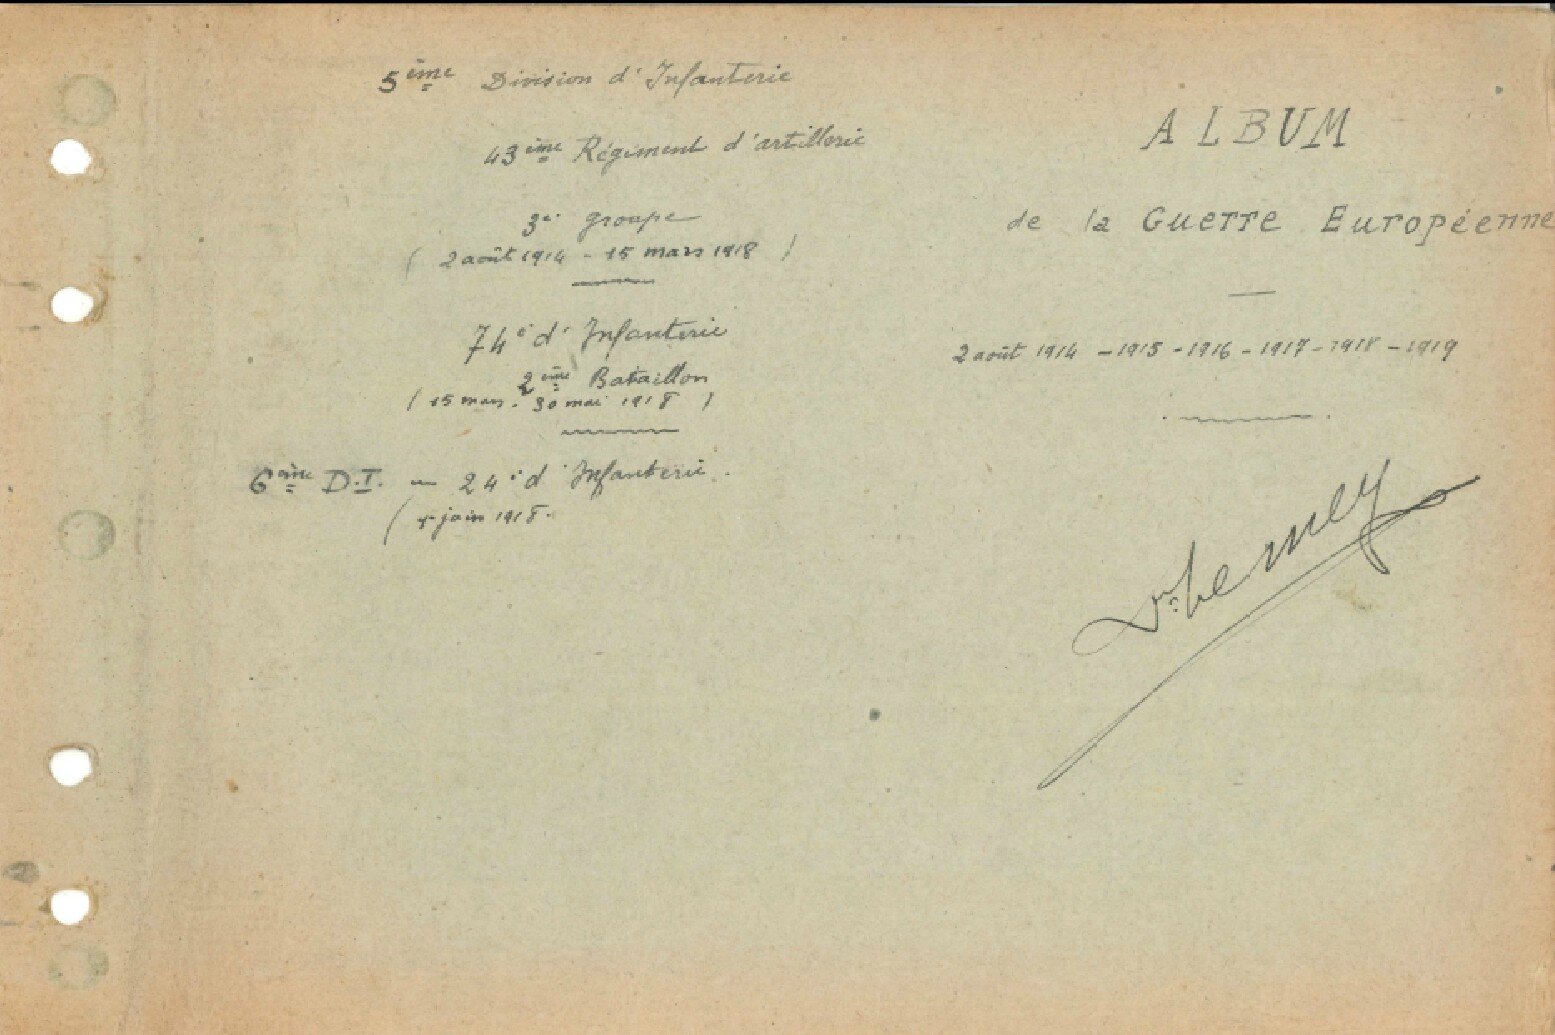 5ème Division d'Infanterie
43ème Régiment d'artillerie
3e groupe
( 2 août 1914 - 15 mars 1918 )
74e d'Infanterie
2ème Bataillon
( 15 mars - 30 mai 1918 )
6ème D.I. - 24e d'Infanterie.
( juin 1918.
ALBUM
de la Guerre Européenne
2 août 1914 - 1915 - 1916 - 1917 - 1918 - 1919